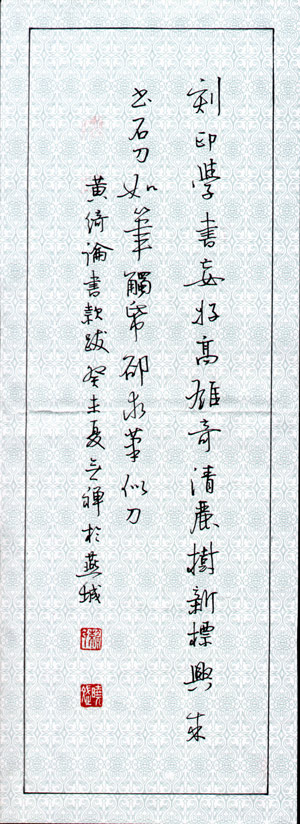 刻印學書妄好高雄奇清麗樹新標興來
书石刀如筆觸帋卻求筆似刀
黃綺論書款跋癸未夏禪於燕城